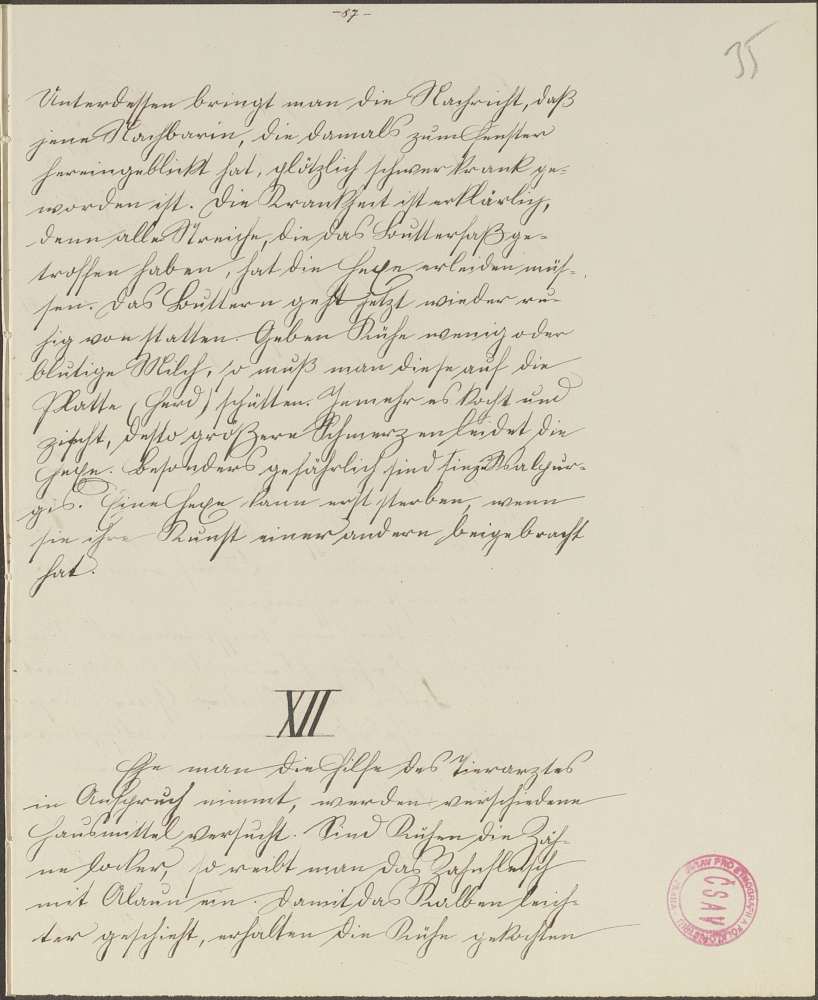 -87-
35
Unterdessen bringt man die Nachricht, daß
jene Nachbarin, die damals zum Fenster
hereingeblickt hat, plötzlich schwer krank ge-
worden ist. Die Krankheit ist erklärlich,
denn alle Streiche, die das Butterfaß ge-
troffen haben, hat die Hexe erleiden müs-
sen. Das Buttern geht jetzt wieder ru-
hig von statten. Geben Kühe wenig oder
blutige Milch, so muß man diese auf die
Platte (Herd) schütten. Jemehr es kocht und
zischt, desto größere Schmerzen leidet die
Hexe. Besonders gefährlich sind sie zu Walpur-
gis. Eine Hexe kann erst sterben, wenn
sie ihre Kunst einer andern beigebracht
hat.
XII
Ehe man die Hilfe des Tierarztes
in Anspruch nimmt, werden verschiedene
Hausmittel versucht. Sind Kühen die Zäh-
ne locker, so reibt man das Zahnfleisch
mit Alaun ein. Damit das Kalben leich-
ter geschieht, erhalten die Kühe gekochten
ÚSTAV PRO ETNOGRAFII A FOLKLORISTIKU - PRAHA
ČSAV